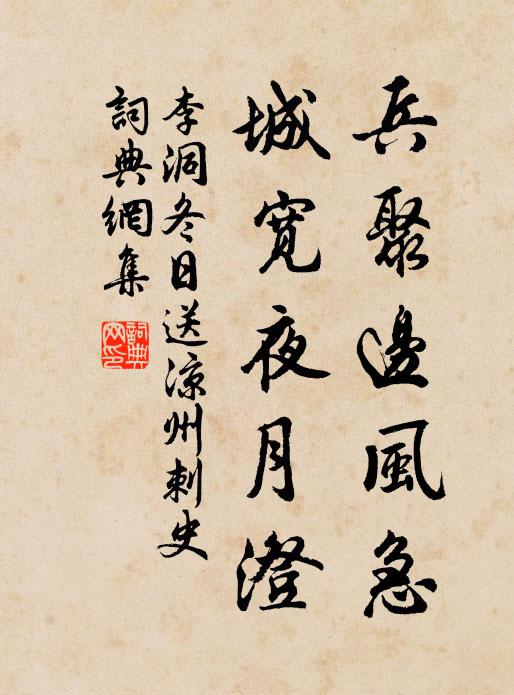 兵聚邊風急
城寬夜月澄
李洞冬日送涼州刺史
詞典網集
詞典網印